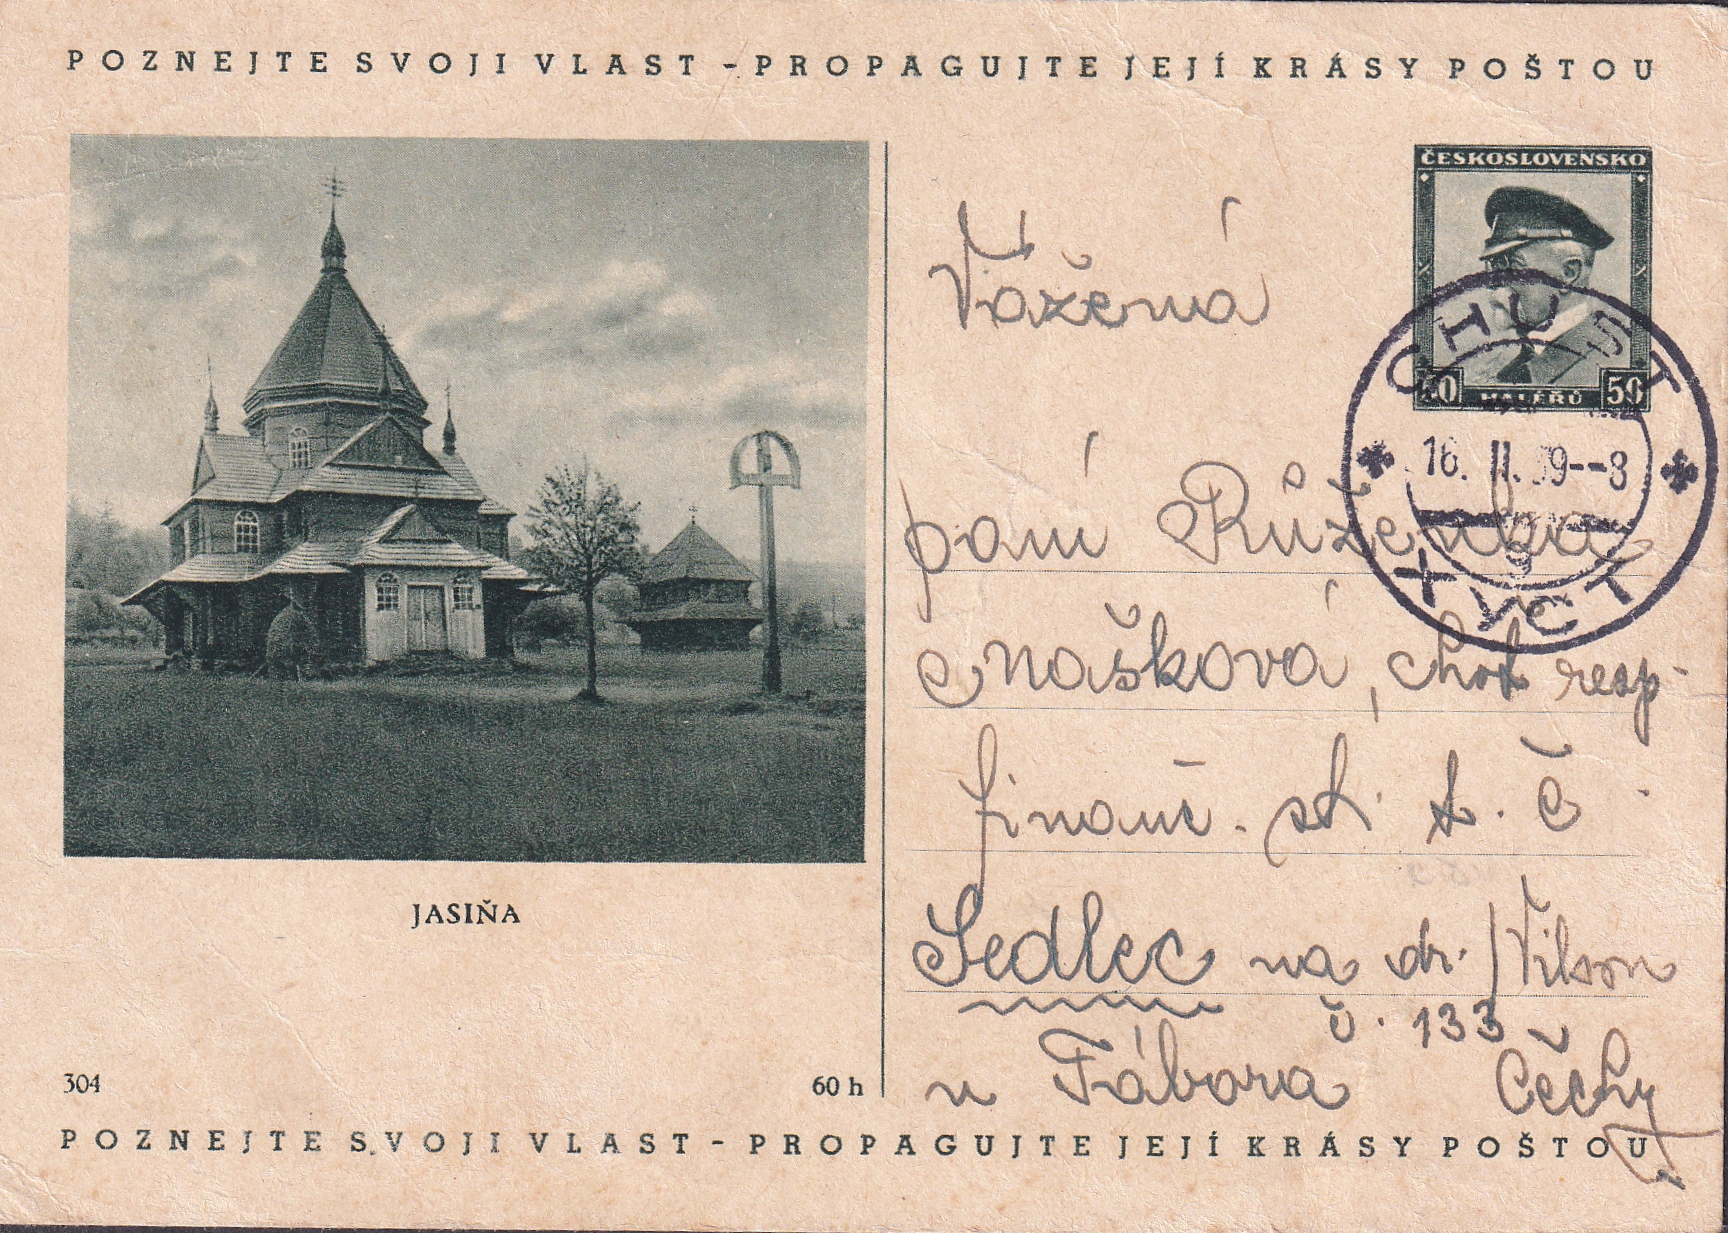 POZNEJTE SVOJI VLAST - PROPAGUJTE JEJÍ KRÁSY POŠTOU
ČESKOSLOVENSKO
50 HALÉŘŮ 50
CHUST
16. II. 39--8
ХУСТ
Vážená
paní Růženka
Mašková, choť resp.
finanč. st.
Sedlec na dr. Wilson
č. 133
u Tábora Čechy
JASIŇA
304
60 h
POZNEJTE SVOJI VLAST - PROPAGUJTE JEJÍ KRÁSY POŠTOU